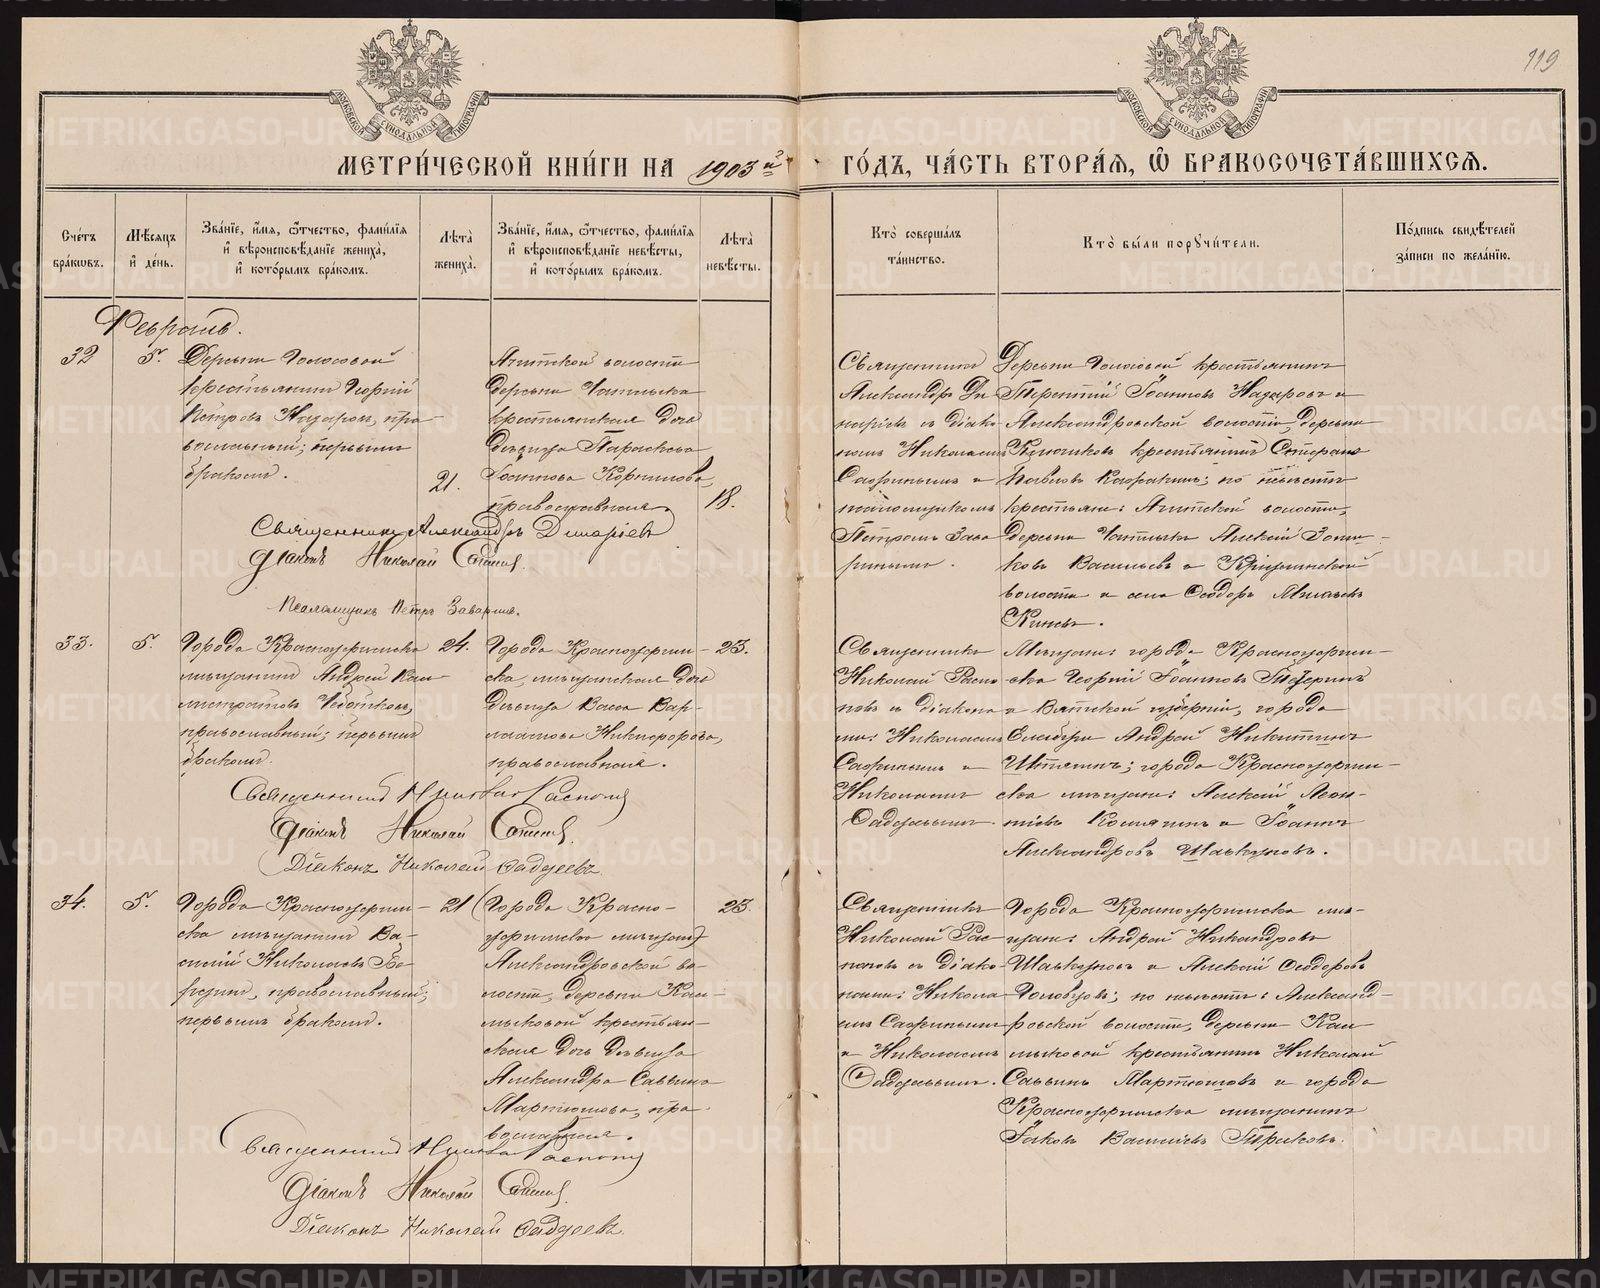 119
МЕТРИ́ЧЕСКОЙ КНИ́ГИ НА 1903 й
ГО́ДЪ, ЧА́СТЬ ВТОРА́Я, Ѿ БРАКОСОЧЕТА́ВШИХСѦ.
Сче́тъ бра́кѡвъ.
Мѣ́сяцъ и́ де́нь.
Зва́нїе, и́мѧ, ѻ҆́тчество, фами́лїѧ и́ вѣроисповѣ́данїе жениха̀, и́ кото́рымъ бра́комъ.
Лѣ́та жениха̀.
Зва́нїе, и́мѧ, ѻ҆́тчество, фами́лїѧ и́ вѣроисповѣ́данїе невѣ́сты, и́ кото́рымъ бра́комъ.
Лѣ́та невѣ́сты.
Кто̀ соверша́лъ та́инство.
Кто̀ бы́ли порꙋчи́тели.
По́дпись свидѣ́телей за́писи по жела́нїю.
Февраль.
32
5.
Деревни Голосовой
крестьянинъ Георгій
Петровъ Назаровъ, пра-
вославный; первымъ
бракомъ.
21.
Ачитской волости
деревни
крестьянская дочь
девица Параскева
Іоаннова Корнилова,
православная.
18.
Священникъ
Александръ Ди-
наріевъ съ діако-
номъ Николаемъ
и
псаломщикомъ
Петромъ Зава-
ринымъ.
Деревни Голосовой крестьянинъ
Терентій Іоанновъ Назаровъ и
Александровской волости, деревни
крестьянинъ Стефанъ
Павловъ по невѣстѣ
крестьяне: Ачитской волости,
деревни Алексій
Васильевъ и
волости и села Ѳеодоръ
Священникъ Александръ Динаріевъ
Діаконъ Николай
Псаломщикъ Петръ Заваринъ.
33.
5.
Города Красноуфимска
мѣщанинъ Андрей Кал-
листратовъ Чеботковъ,
православный; первымъ
бракомъ.
24.
Города Красноуфим-
ска, мѣщанская дочь
девица Васса Вар-
лаамова Никифорова,
православная.
23.
Священникъ
Николай Распо-
повъ съ діакона-
ми: Николаемъ
и
Николаемъ
Садуевымъ.
Мѣщане: города Красноуфим-
ска Георгій Іоанновъ
и Вятской губерніи, города
Елабуги Андрей Никитинъ
города Красноуфим-
ска мѣщане: Алексій Леон-
тіевъ и Іоаннъ
Александровъ Шавкуновъ.
Священникъ Николай Распоповъ
Діаконъ Николай
Діаконъ Николай Садуевъ.
34.
5.
Города Красноуфим-
ска мѣщанинъ Ва-
силій Николаевъ
православный;
первымъ бракомъ.
21
(Города Красно-
уфимска мѣщан)
Александровской во-
лости, деревни Кал-
мыковой крестьян-
ская дочь девица
Александра Саввина
Мартюшова, пра-
вославная.
23.
Священникъ
Николай Рас-
поповъ съ діако-
нами: Никола-
емъ
и Николаемъ
Садуевымъ.
Города Красноуфимска мѣ-
щане: Андрей Никандровъ
Шавкуновъ и Алексій Ѳеодоровъ
Головцовъ; по невѣстѣ: Александ-
ровской волости, деревни Кал-
мыковой крестьянинъ Николай
Саввинъ Мартюшовъ и города
Красноуфимска мѣщанинъ
Іаковъ Васильевъ
Священникъ Николай Распоповъ
Діаконъ Николай
Діаконъ Николай Садуевъ.
METRIKI.GASO-URAL.RU